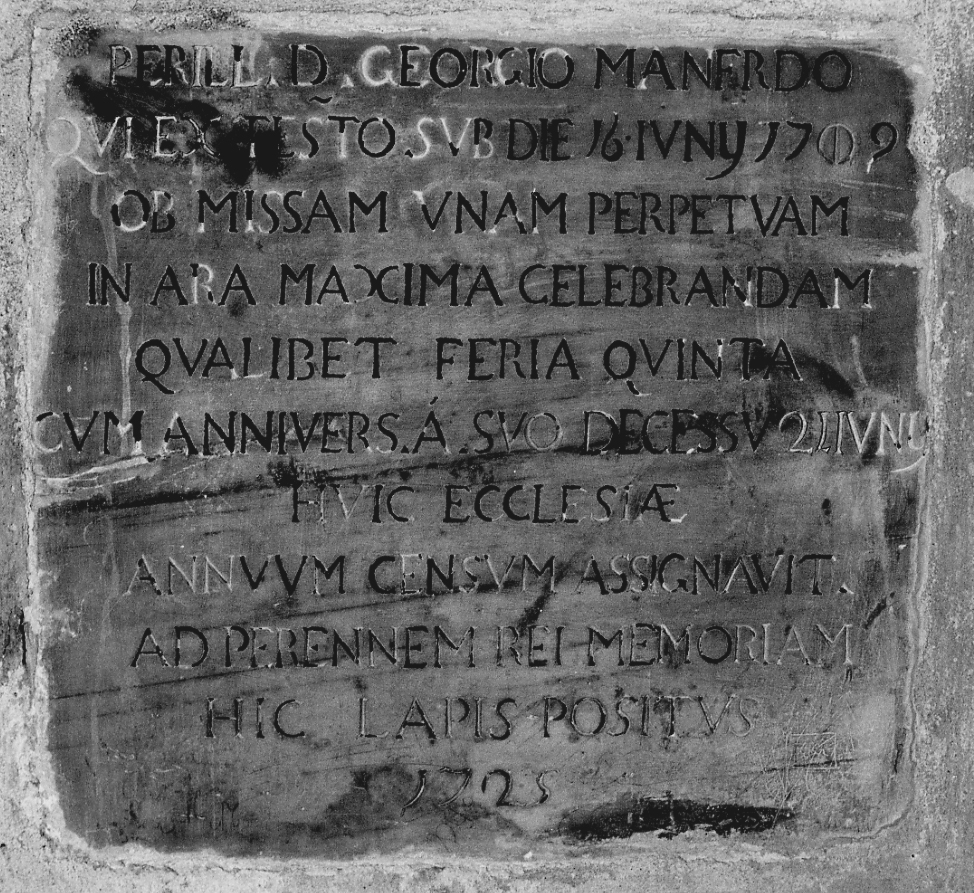 PERILL. D. GEORGIO MANFRDO
QVI EX TESTO. SVB DIE 16. IVNIJ 1709
OB MISSAM VNAM PERPETVAM
IN ARA MAXIMA CELEBRANDAM
QVALIBET FERIA QVINTA
CVM ANNIVERS. Á. SVO DECESSV 21 IVNIJ
HVIC ECCLESIÆ
ANNVVM CENSVM ASSIGNAVIT.
AD PERENNEM REI MEMORIAM
HIC LAPIS POSITVS
1725